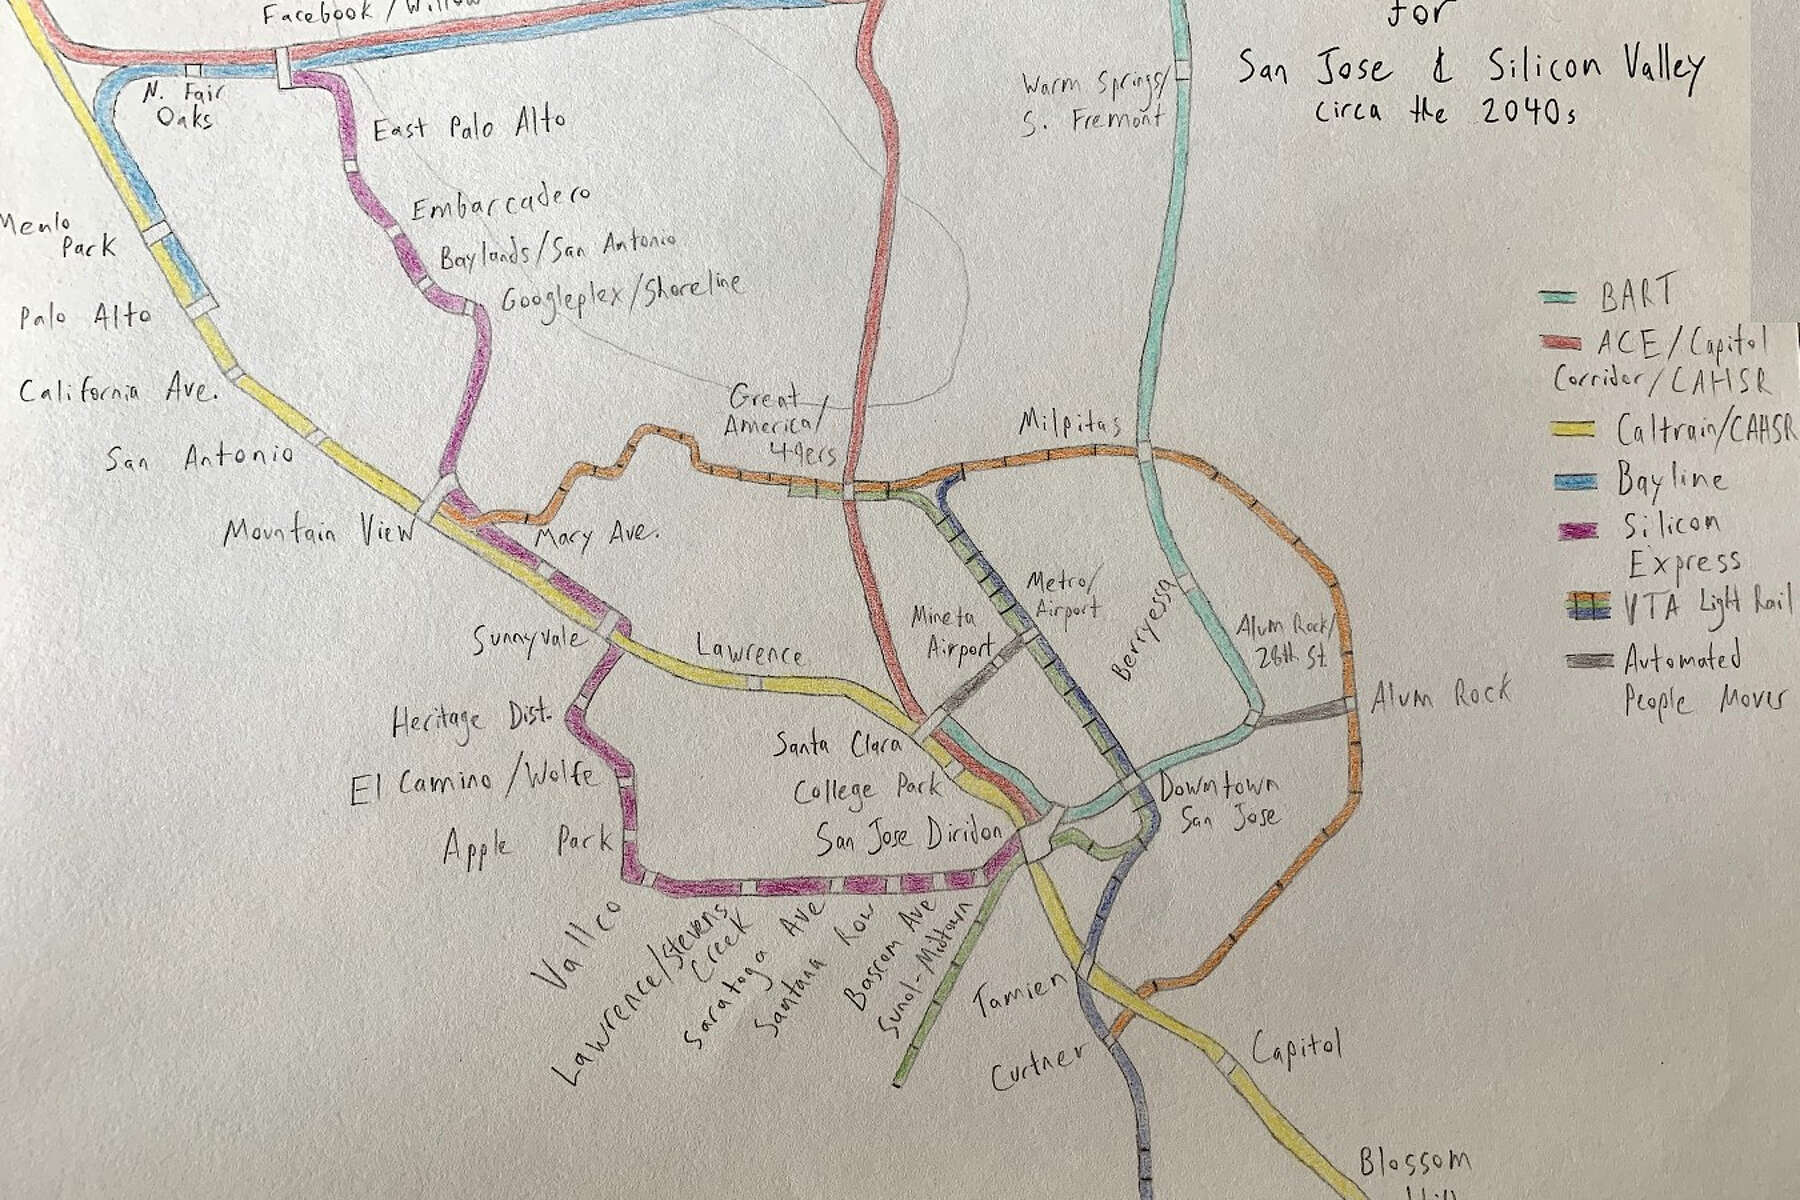 Facebook / Willow
for
San Jose & Silicon Valley
circa the 2040s
N. Fair
Oaks
East Palo Alto
Warm Springs/
S. Fremont
Embarcadero
Menlo
Park
Baylands/San Antonio
Googleplex/Shoreline
Palo Alto
California Ave.
San Antonio
Mountain View
Great
America/
49ers
Milpitas
Mary Ave.
Sunnyvale
Lawrence
Metro/
Airport
Mineta
Airport
Berryessa
Alum Rock/
28th St.
Alum Rock
Heritage Dist.
El Camino/Wolfe
Apple Park
Santa Clara
College Park
San Jose Diridon
Downtown
San Jose
Vallco
Lawrence/Stevens
Creek
Saratoga Ave
Santana Row
Bascom Ave
Sunol-Midtown
Tamien
Curtner
Capitol
Blossom
Hill
BART
ACE/Capitol
Corridor/CAHSR
Caltrain/CAHSR
Bayline
Silicon
Express
VTA Light Rail
Automated
People Mover